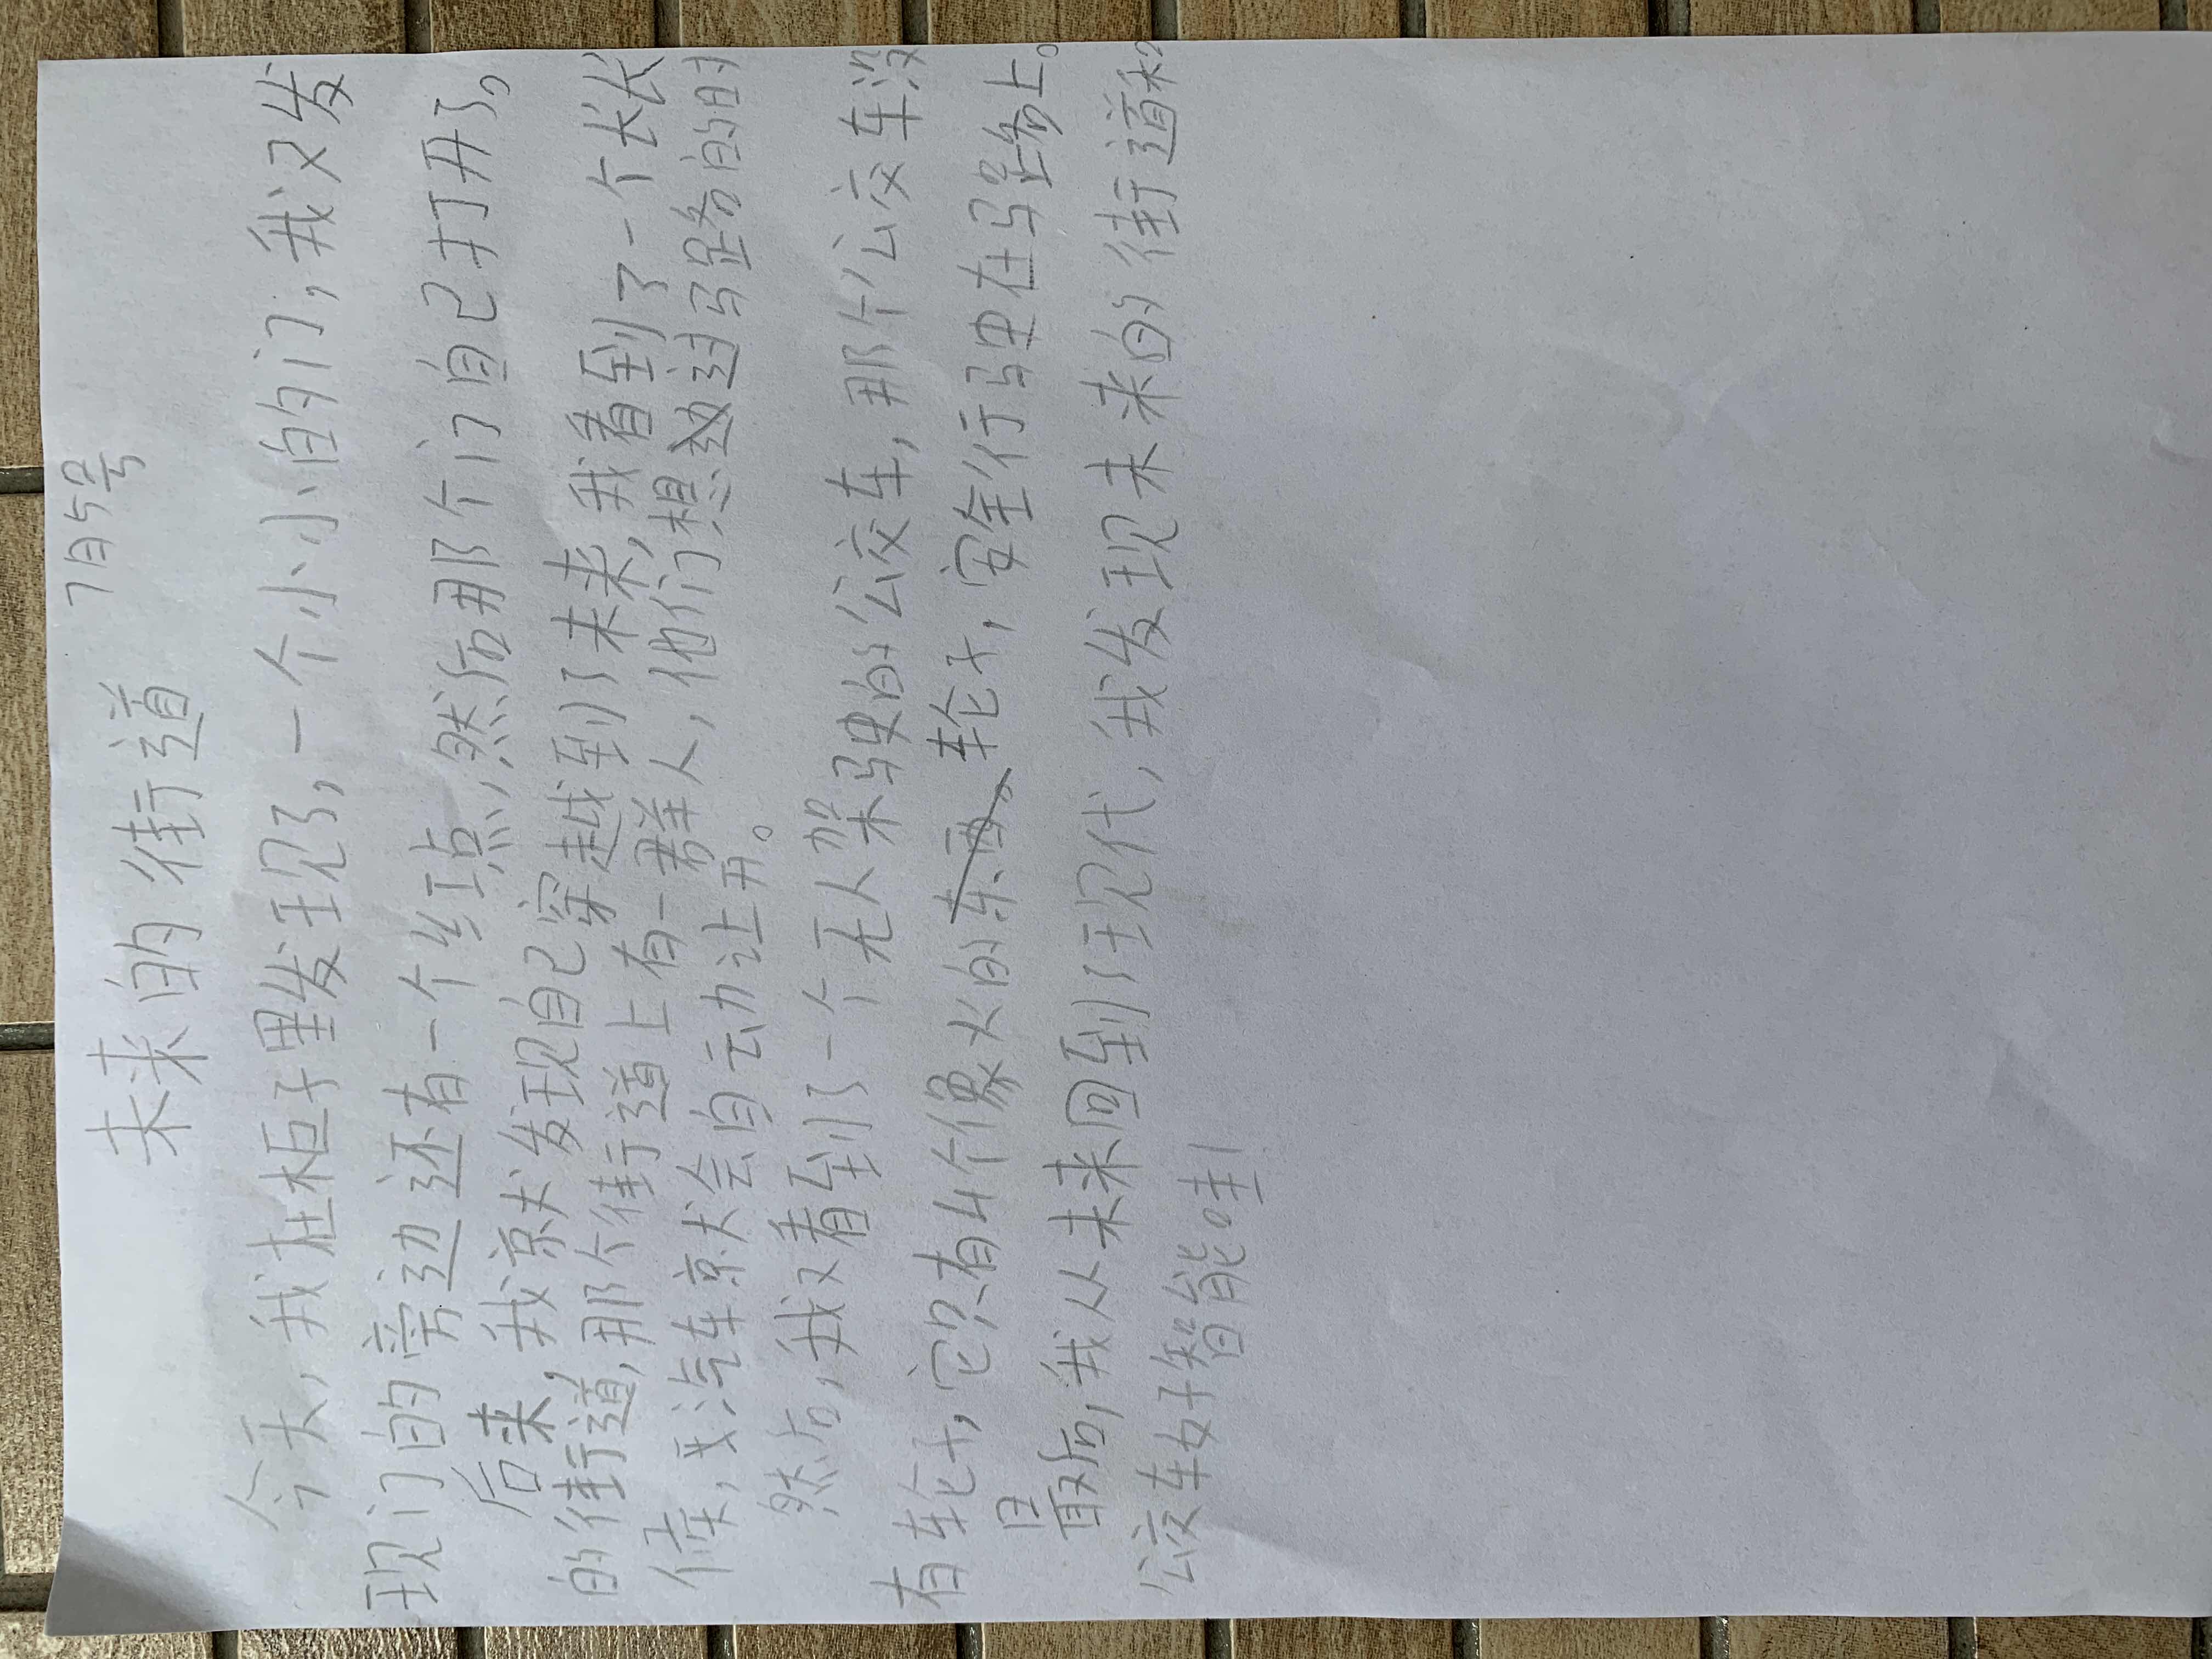 未来的街道 7月5号
今天，我在柜子里发现了，一个小小的门，我又发
现门的旁边还有一个红点，然后那个门自己打开了，
后来，我京犬发现自己穿越到了未来，我看到了一个长长
的街道，那个街道上有一群人，他们想过马路的时
候，汽车京犬会自动让开。
然后，我又看到了一个无人架驶的公交车，那个公交车没
有轮子，它只有4个像火的东西。轮子，安全行驶在马路上。
最后，我从未来回到了现代，我发现未来的街道和
公交车好智能哇！